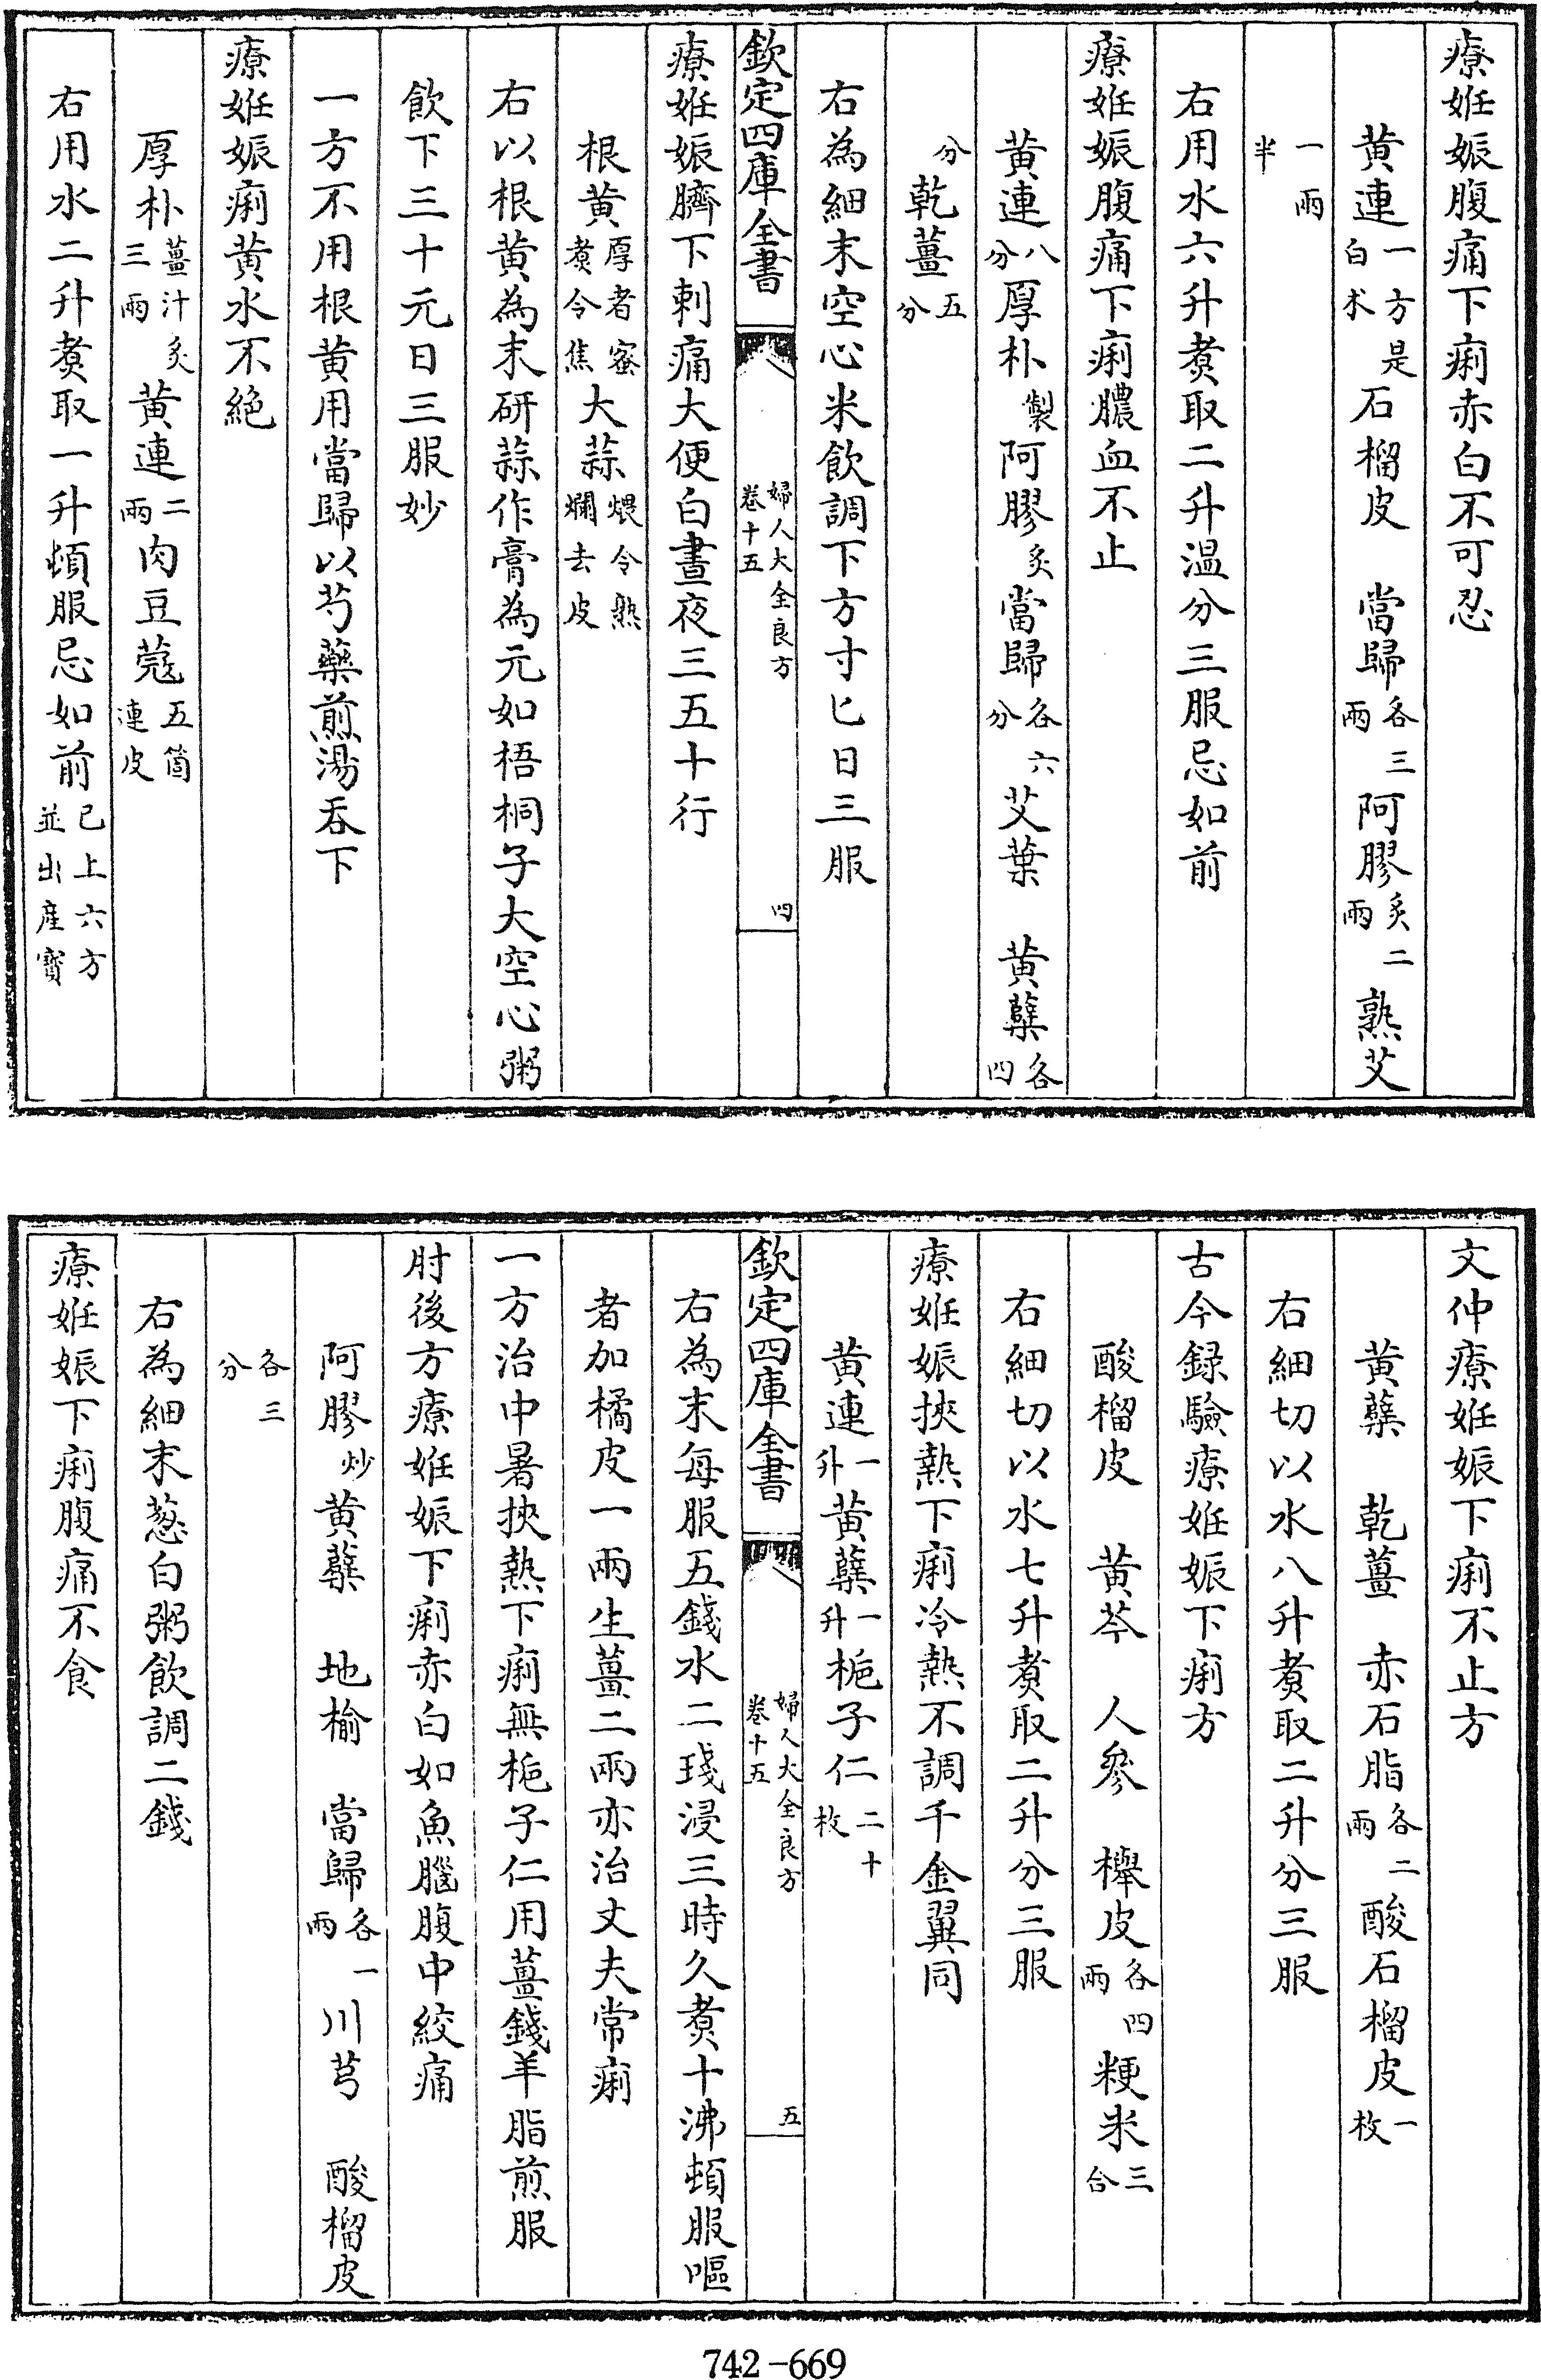 療姙娠腹痛下痢赤白不可忍
黄連一方是白术石榴皮　當歸各三兩阿膠炙二兩熟艾
一兩半
右用水六升煑取二升温分三服忌如前
療姙娠腹痛下痢膿血不止
黄連八分厚朴製阿膠炙當歸各六分艾葉　黄蘗各四
分乾薑五分
右為細末空心米飲調下方寸匕日三服
欽定四庫全書　婦人大全良方卷十五　四
療姙娠臍下刺痛大便白晝夜三五十行
根黄厚者蜜煑令焦大蒜煨令熟爛去皮
右以根黄為末研蒜作膏為元如梧桐子大空心粥
飲下三十元日三服妙
一方不用根黄用當歸以芍藥煎湯吞下
療姙娠痢黄水不絶
厚朴薑汁炙三兩黄連二兩肉豆蔻五箇連皮
右用水二升煑取一升頓服忌如前已上六方並出産寳
文仲療姙娠下痢不止方
黄蘗　乾薑　赤石脂各二兩酸石榴皮一枚
右細切以水八升煑取二升分三服
古今録驗療姙娠下痢方
酸榴皮　黄芩　人參　櫸皮各四兩粳米三合
右細切以水七升煑取二升分三服
療姙娠挾熱下痢冷熱不調千金翼同
黄連一升黄蘗一升梔子仁二十枚
欽定四庫全書　婦人大全良方卷十五　五
右為末每服五錢水二琖浸三時久煑十沸頓服嘔
者加橘皮一兩生薑二兩亦治丈夫常痢
一方治中暑挾熱下痢無梔子仁用薑錢羊脂煎服
肘後方療姙娠下痢赤白如魚腦腹中絞痛
阿膠炒黄蘗　地榆　當歸各一兩川芎　酸榴皮
各三分
右為細末葱白粥飲調二錢
療姙娠下痢腹痛不食
742-669